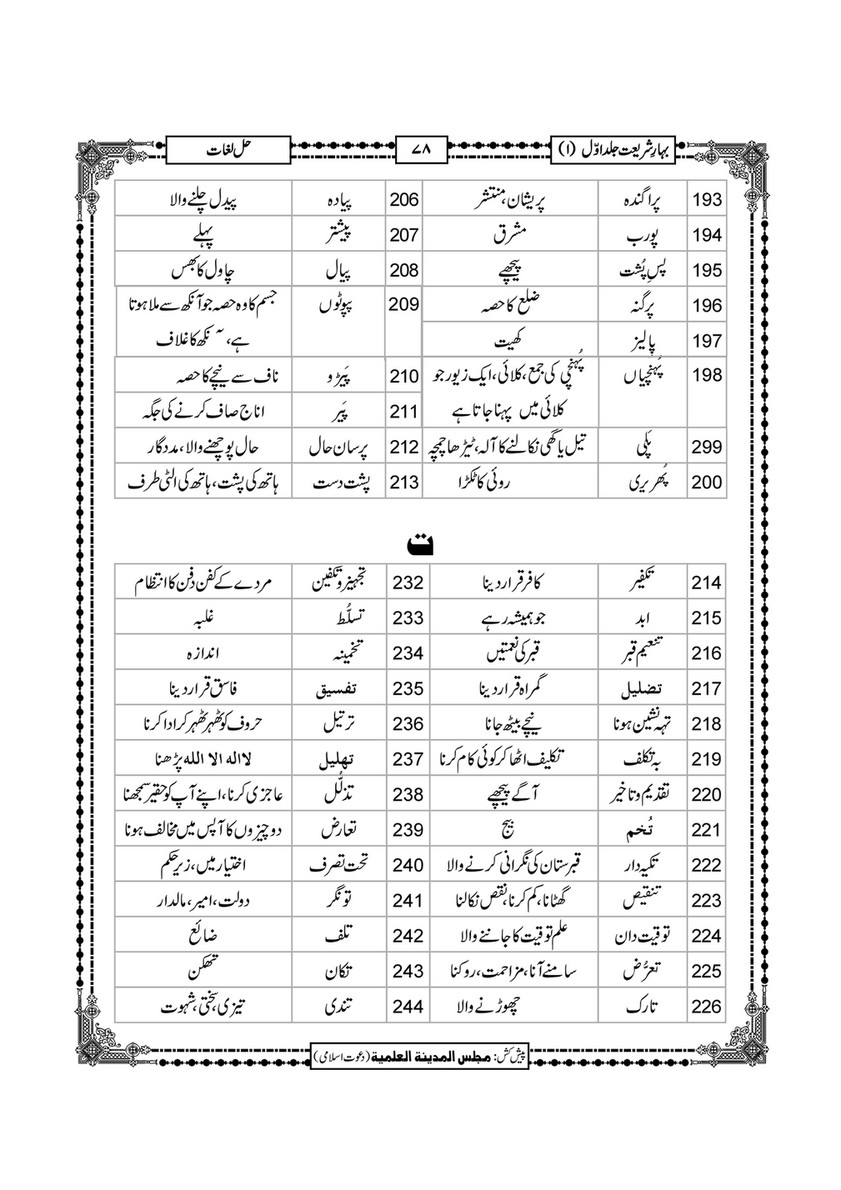 بہارِ شریعت جلد اوّل (۱) ۷۸ حل لغات
193 پراگندہ پریشان، منتشر 206 پیادہ پیدل چلنے والا
194 پورب مشرق 207 پیشتر پہلے
195 پسِ پُشت پیچھے 208 پیال چاول کا بھس
196 پرگنہ ضلع کا حصہ 209 پپوٹوں جسم کا وہ حصہ جو آنکھ سے ملا ہوتا
197 پالیز کھیت ہے، نکھ کا غلاف
198 پُہنچیاں پُہنچی کی جمع، کلائی، ایک زیور جو 210 پَیڑو ناف سے نیچے کا حصہ
کلائی میں پہنا جاتا ہے 211 پَیَر اناج صاف کرنے کی جگہ
299 پَلی تیل یا گھی نکالنے کا آلہ، ٹیڑھا چمچہ 212 پرسان حال حال پوچھنے والا، مددگار
200 پُھریری روئی کا ٹکڑا 213 پشت دست ہاتھ کی پشت، ہاتھ کی الٹی طرف
ت
214 تکفیر کافر قرار دینا 232 تجہیز و تکفین مردے کے کفن دفن کا انتظام
215 ابد جو ہمیشہ رہے 233 تسلُّط غلبہ
216 تنعیم قبر قبر کی نعمتیں 234 تخمینہ اندازہ
217 تضلیل گمراہ قرار دینا 235 تفسیق فاسق قرار دینا
218 تہہ نشین ہونا نیچے بیٹھ جانا 236 ترتیل حروف کو ٹھہر ٹھہر کر ادا کرنا
219 بہ تکلف تکلیف اٹھا کر کوئی کام کرنا 237 تهلیل لا اله الا الله پڑھنا
220 تقدیم و تاخیر آگے پیچھے 238 تذلُّل عاجزی کرنا، اپنے آپ کو حقیر سمجھنا
221 تُخم بیج 239 تعارض دو چیزوں کا آپس میں مخالف ہونا
222 تکیہ دار قبرستان کی نگرانی کرنے والا 240 تحت تصرف اختیار میں، زیرِ حکم
223 تنقیص گھٹانا، کم کرنا، نقص نکالنا 241 تونگر دولت، امیر، مالدار
224 توقیت دان علم توقیت کا جاننے والا 242 تلف ضائع
225 تعرُّض سامنے آنا، مزاحمت، روکنا 243 تکان تھکن
226 تارک چھوڑنے والا 244 تندی تیزی، سختی، شہوت
پیش کش: مجلس المدينة العلمية (دعوت اسلامی)